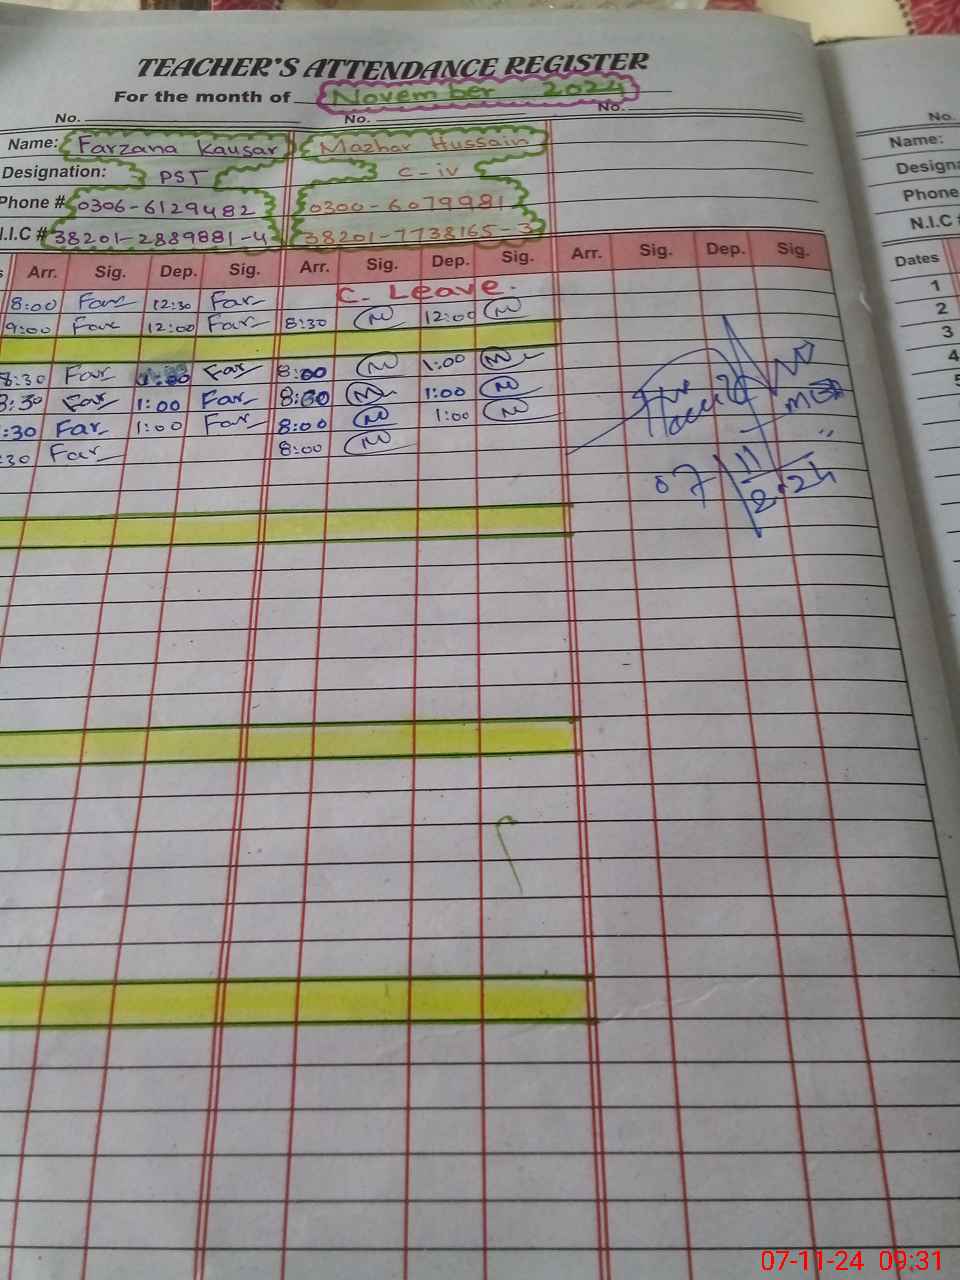 TEACHER'S ATTENDANCE REGISTER
For the month of November 2024
No. No. No.
Name: Farzana Kausar Mazhar Hussain
Designation: PST C-iv
Phone # 0306-6129482 0300-6079981
N.I.C # 38201-2889881-4 38201-7738165-3
Arr. Sig. Dep. Sig. Arr. Sig. Dep. Sig. Arr. Sig. Dep. Sig.
8:00 Far 12:30 Far C. Leave.
9:00 Far 12:00 Far 8:30 M 12:00 M
8:30 Far 1:00 Far 8:00 M 1:00 M
8:30 Far 1:00 Far 8:00 M 1:00 M
:30 Far 1:00 Far 8:00 M 1:00 M
:30 Far 8:00 M
07/11/2024
No.
Name:
Designa
Phone
N.I.C #
Dates
1
2
3
4
5
07-11-24 09:31